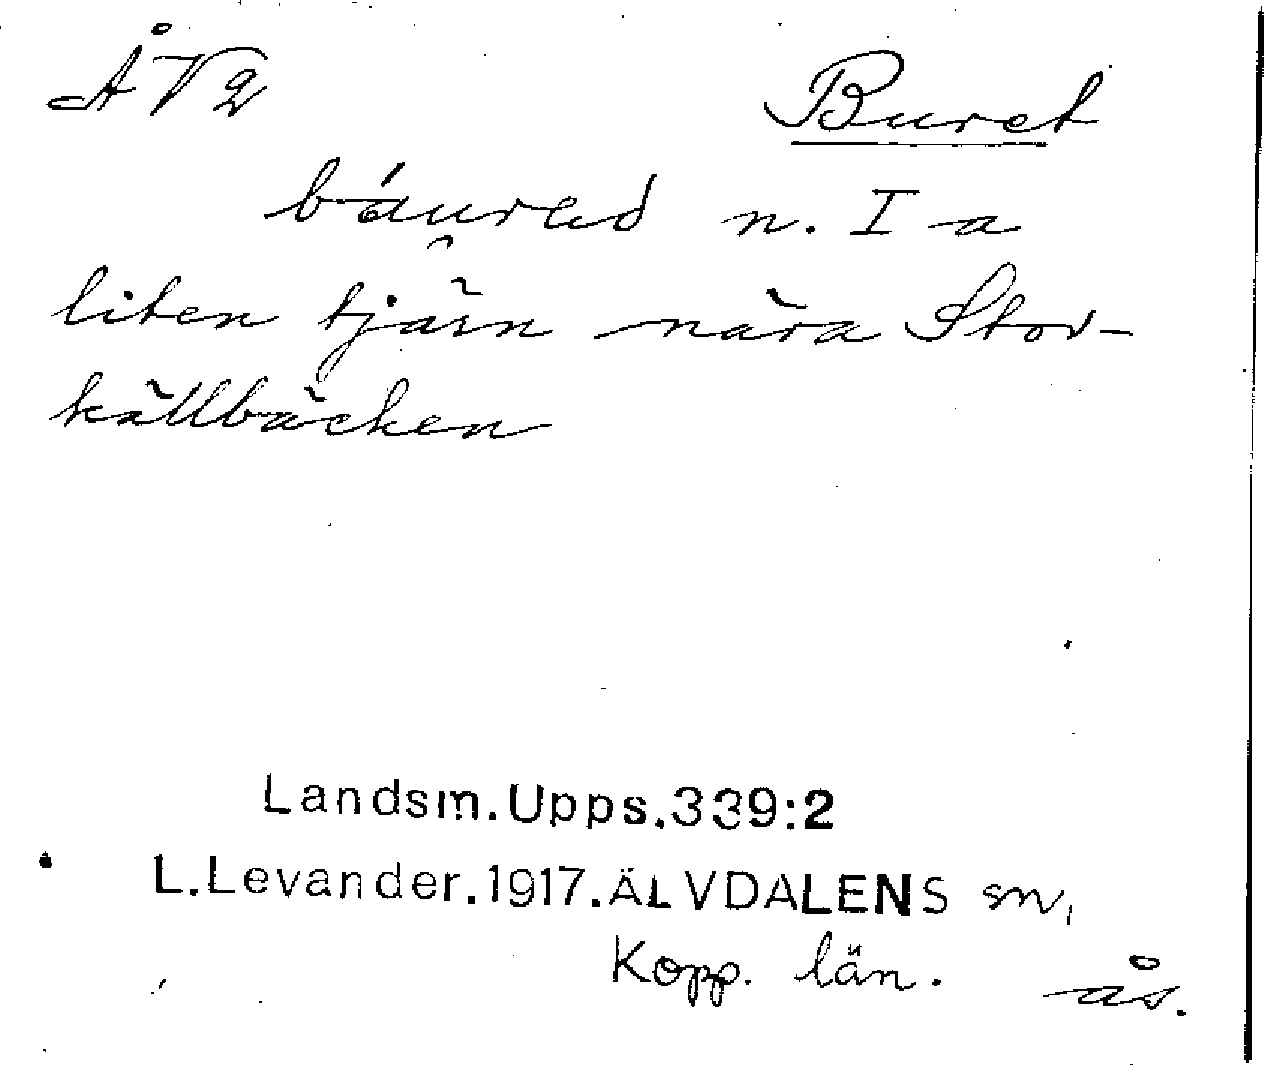 ÅV2 Buret
báu̯rəd n. I a
liten tjärn nära Stor-
källbäcken
Landsm.Upps.339:2
L.Levander.1917.ÄLVDALENS sn,
Kopp. län. ås.